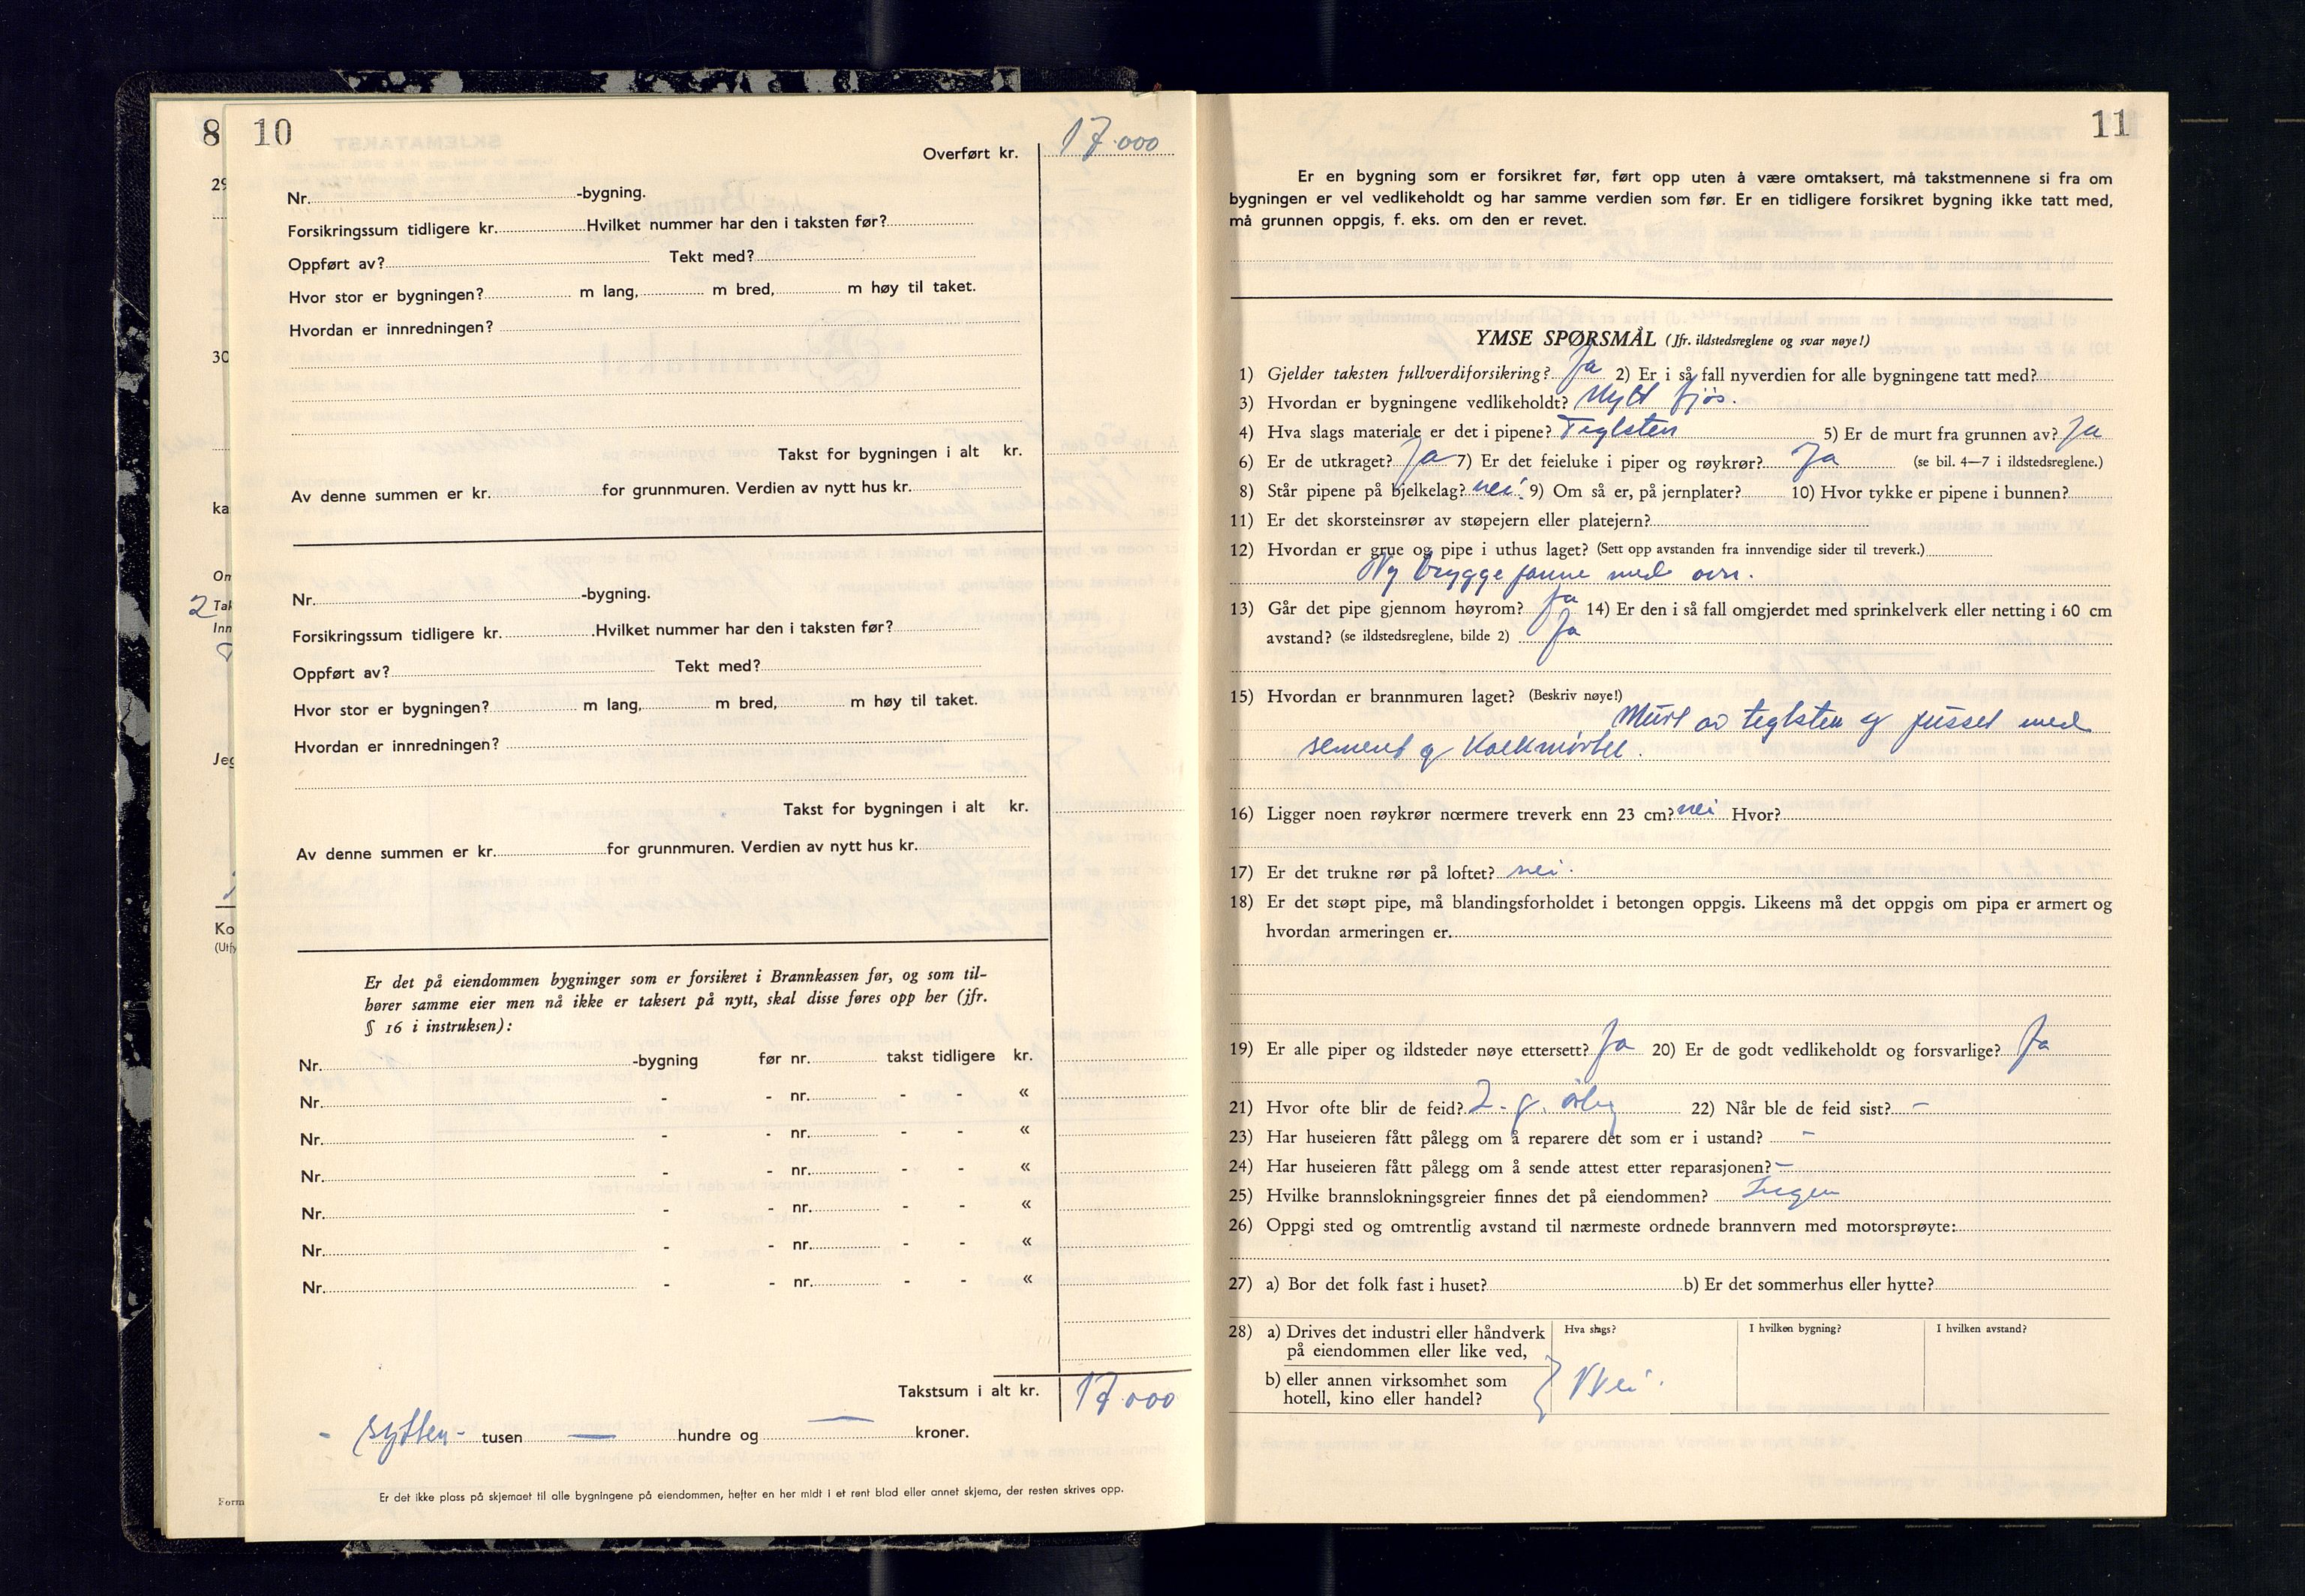 8
29
30
ka
On
2 Tak
Inn
8
Jeg
Ko
(Utfy
Form
10
Overført kr. 17.000
Nr. -bygning.
Forsikringssum tidligere kr. Hvilket nummer har den i taksten før?
Oppført av? Tekt med?
Hvor stor er bygningen? m lang, m bred, m høy til taket.
Hvordan er innredningen?
Takst for bygningen i alt kr.
Av denne summen er kr. for grunnmuren. Verdien av nytt hus kr.
Nr. -bygning.
Forsikringssum tidligere kr. Hvilket nummer har den i taksten før?
Oppført av? Tekt med?
Hvor stor er bygningen? m lang, m bred, m høy til taket.
Hvordan er innredningen?
Takst for bygningen i alt kr.
Av denne summen er kr. for grunnmuren. Verdien av nytt hus kr.
Er det på eiendommen bygninger som er forsikret i Brannkassen før, og som til-
hører samme eier men nå ikke er taksert på nytt, skal disse føres opp her (jfr.
§ 16 i instruksen):
Nr. -bygning før nr. takst tidligere kr.
Nr. - - nr. - - «
Nr. - - nr. - - «
Nr. - - nr. - - «
Nr. - - nr. - - «
Nr. - - nr. - - «
Nr. - - nr. - - «
Takstsum i alt kr. 17.000
- sytten - tusen — hundre og — kroner.
Er det ikke plass på skjemaet til alle bygningene på eiendommen, hefter en her midt i et rent blad eller annet skjema, der resten skrives opp.
11
Er en bygning som er forsikret før, ført opp uten å være omtaksert, må takstmennene si fra om
bygningen er vel vedlikeholdt og har samme verdien som før. Er en tidligere forsikret bygning ikke tatt med,
må grunnen oppgis, f. eks. om den er revet.
YMSE SPØRSMÅL (Jfr. ildstedsreglene og svar nøye!)
1) Gjelder taksten fullverdiforsikring? Ja 2) Er i så fall nyverdien for alle bygningene tatt med?
3) Hvordan er bygningene vedlikeholdt? Nytt fjøs.
4) Hva slags materiale er det i pipene? Teglsten 5) Er de murt fra grunnen av? Ja
6) Er de utkraget? Ja 7) Er det feieluke i piper og røykrør? Ja (se bil. 4—7 i ildstedsreglene.)
8) Står pipene på bjelkelag? nei. 9) Om så er, på jernplater? 10) Hvor tykke er pipene i bunnen?
11) Er det skorsteinsrør av støpejern eller platejern?
12) Hvordan er grue og pipe i uthus laget? (Sett opp avstanden fra innvendige sider til treverk.)
Ny bryggepanne med ovn.
13) Går det pipe gjennom høyrom? Ja 14) Er den i så fall omgjerdet med sprinkelverk eller netting i 60 cm
avstand? (se ildstedsreglene, bilde 2) Ja
15) Hvordan er brannmuren laget? (Beskriv nøye!)
Murt av teglsten og pusset med
sement og Kalkmørtel.
16) Ligger noen røykrør nœrmere treverk enn 23 cm? nei Hvor?
17) Er det trukne rør på loftet? nei.
18) Er det støpt pipe, må blandingsforholdet i betongen oppgis. Likeens må det oppgis om pipa er armert og
hvordan armeringen er.
19) Er alle piper og ildsteder nøye ettersett? Ja 20) Er de godt vedlikeholdt og forsvarlige? Ja
21) Hvor ofte blir de feid? 2. g. årlig 22) Når ble de feid sist? -
23) Har huseieren fått pålegg om å reparere det som er i ustand? -
24) Har huseieren fått pålegg om å sende attest etter reparasjonen? -
25) Hvilke brannslokningsgreier finnes det på eiendommen? Ingen
26) Oppgi sted og omtrentlig avstand til nærmeste ordnede brannvern med motorsprøyte:
27) a) Bor det folk fast i huset? b) Er det sommerhus eller hytte?
28) a) Drives det industri eller håndverk Hva slags? I hvilken bygning? I hvilken avstand?
på eiendommen eller like ved,
b) eller annen virksomhet som Nei.
hotell, kino eller handel?